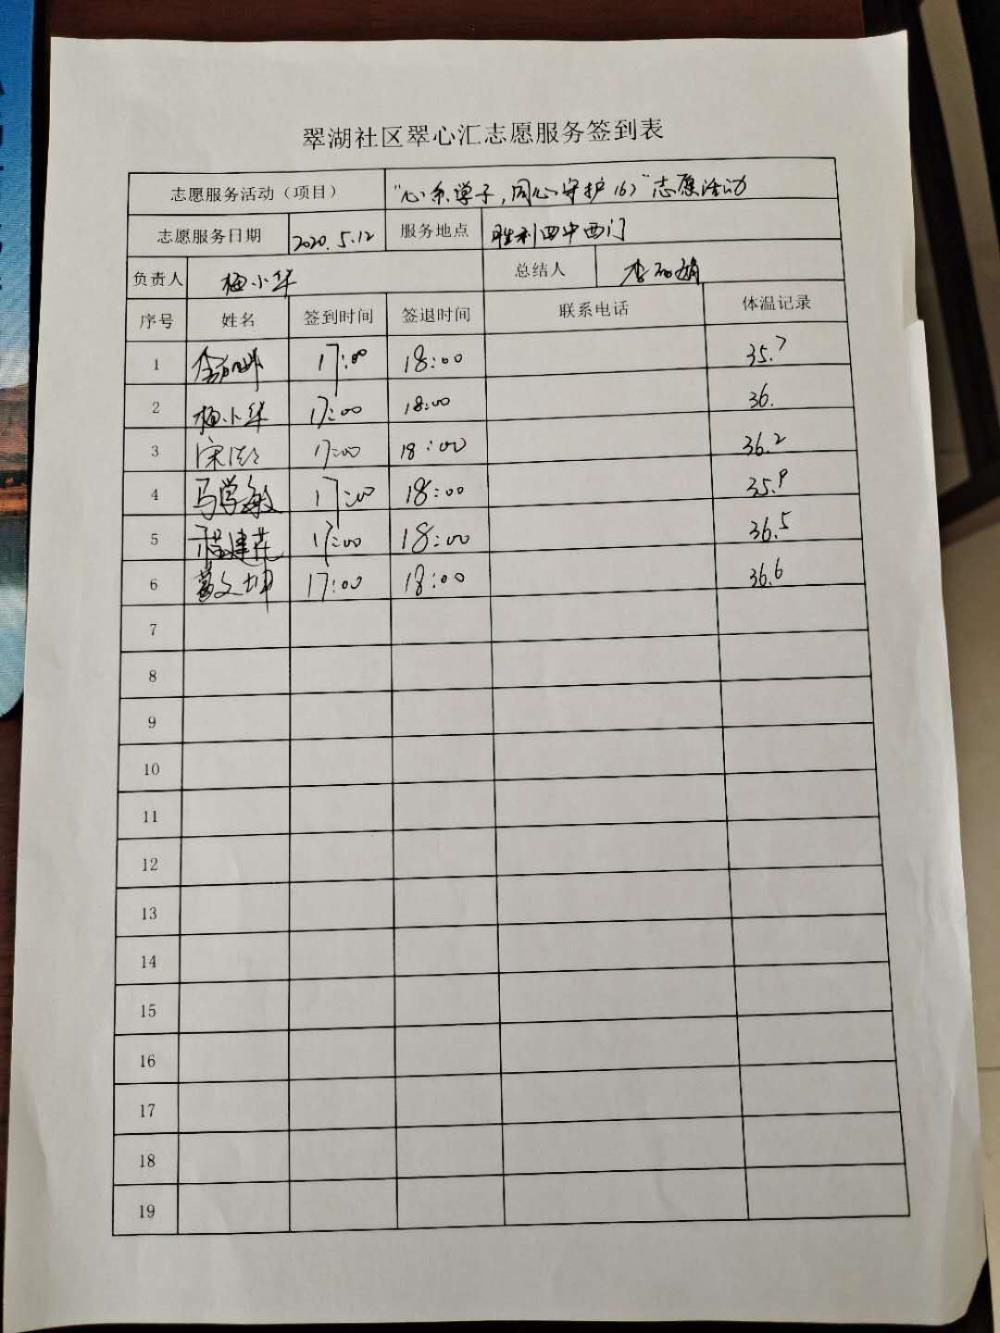 翠湖社区翠心汇志愿服务签到表
志愿服务活动（项目） “心系学子，同心守护（6）”志愿活动
志愿服务日期 2020.5.12 服务地点 胜利四中西门
负责人 梅小华 总结人 李
序号 姓名 签到时间 签退时间 联系电话 体温记录
1 17:00 18:00 35.7
2 梅小华 17:00 18:00 36.
3 宋 17:00 18:00 36.2
4 马学敏 17:00 18:00 35.9
5 建花 17:00 18:00 36.5
6 葛文坤 17:00 18:00 36.6
7
8
9
10
11
12
13
14
15
16
17
18
19